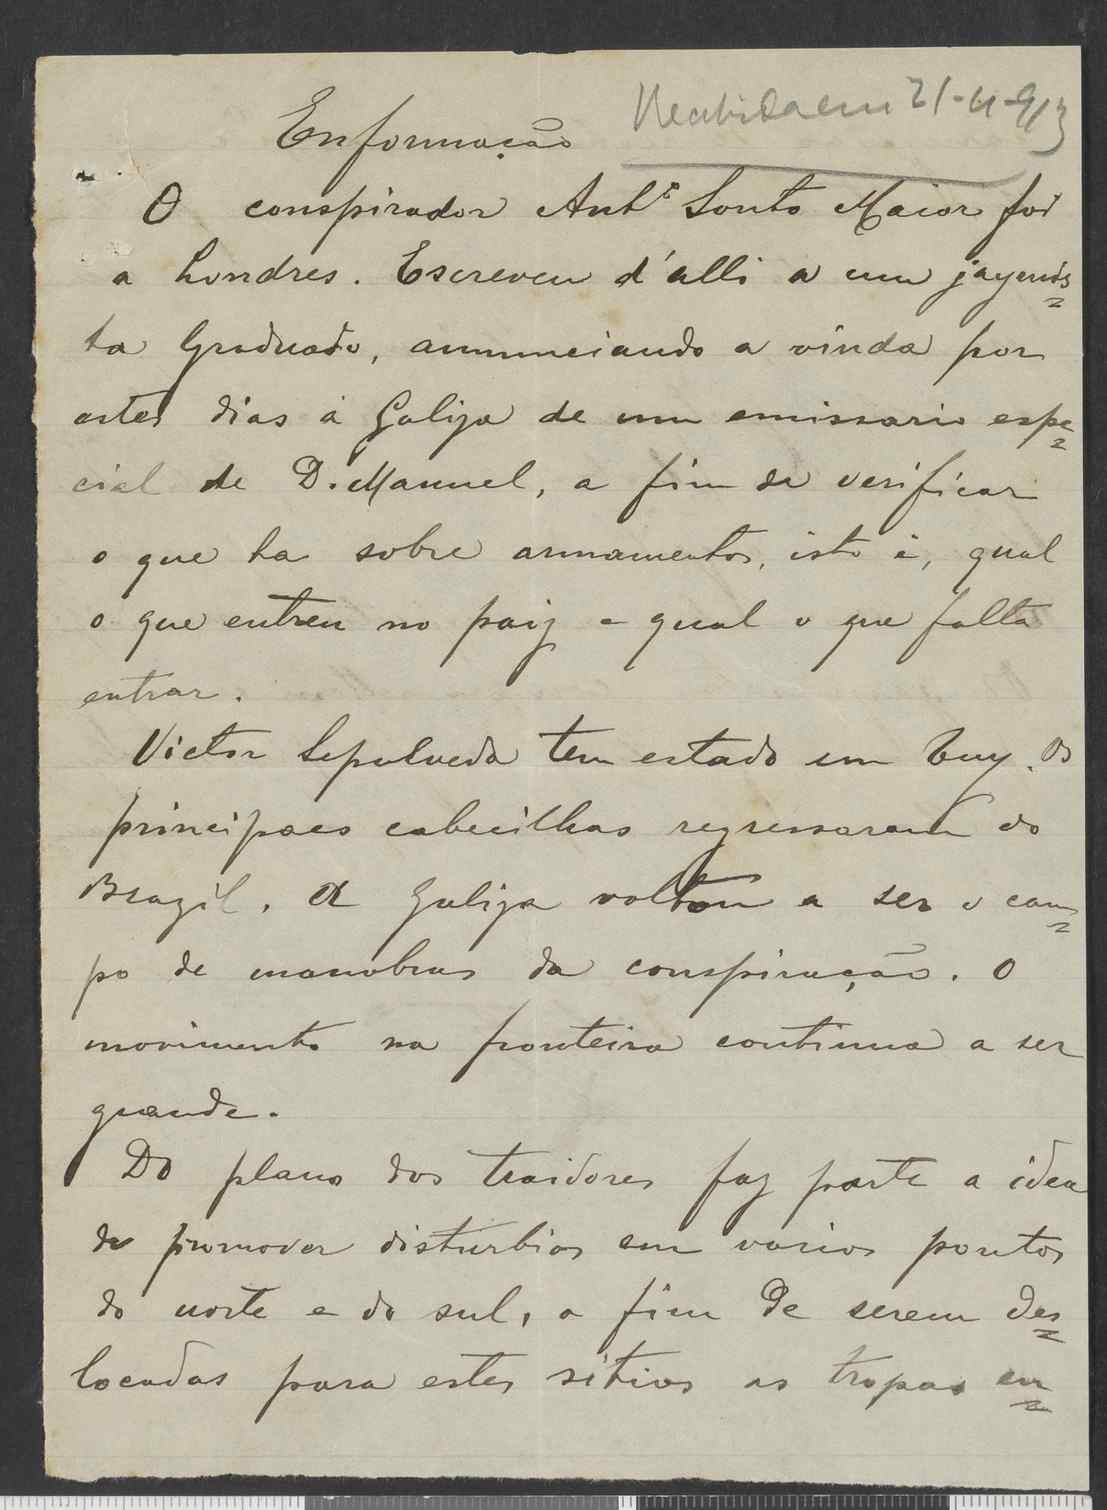 Recebida em 21-4-913
Enformação
O conspirador Antº Souto Maior foi
a Londres. Escreveu d'alli a um jaymis=
ta graduado, annunciando a vinda por
estes dias á Galiza de um emissario espe=
cial de D. Manuel, a fim de verificar
o que ha sobre armamentos, isto é, qual
o que entrou no paiz e qual o que falta
entrar.
Victor Sepulveda tem estado em Tuy. Os
principaes cabecilhas regressaram do
Brazil. A Galiza voltou a ser o cam=
po de manobras da conspiração. O
movimento na fronteira continua a ser
grande.
Do plano dos traidores faz parte a idea
de promover disturbios em varios pontos
do norte e do sul, a fim de serem des=
locadas para estes sitios as tropas en=